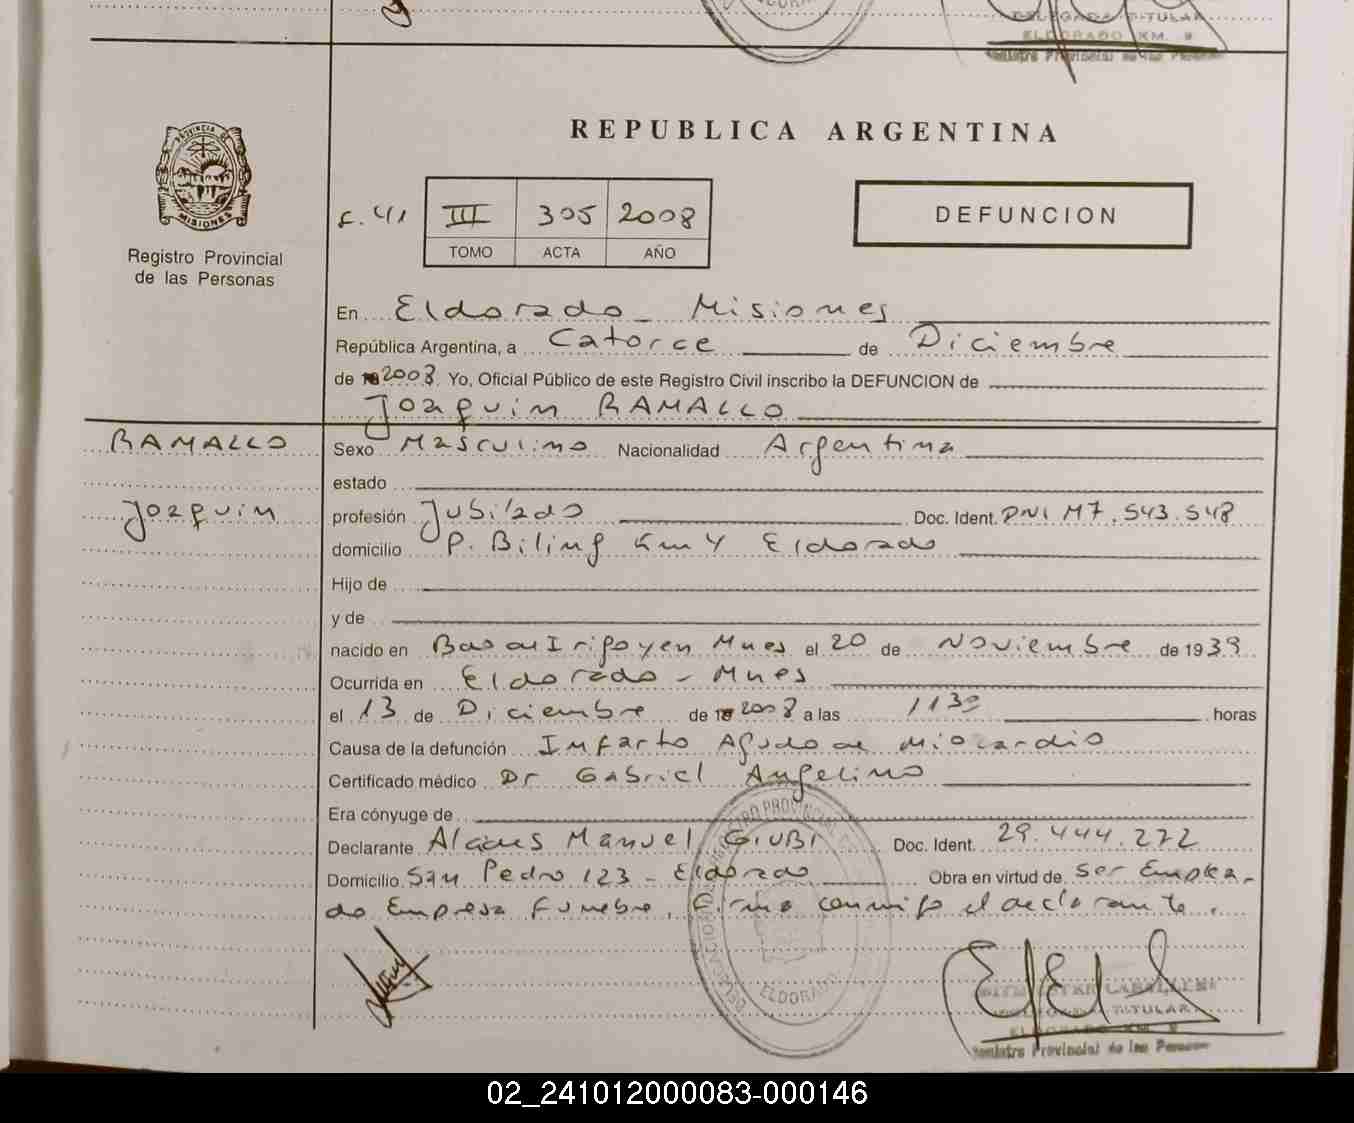 DELEGADA TITULAR
ELDORADO KM. 9
Registro Provincial de las Personas
REPUBLICA ARGENTINA
PROVINCIA DE
MISIONES
Registro Provincial
de las Personas
F. 41
III 305 2008
TOMO ACTA AÑO
DEFUNCION
En Eldorado - Misiones
República Argentina, a Catorce de Diciembre
de 2008. Yo, Oficial Público de este Registro Civil inscribo la DEFUNCION de
Joaquin RAMALLO
RAMALLO
Joaquin
Sexo Masculino Nacionalidad Argentina
estado
profesión Jubilado Doc. Ident. DNI M7.543.548
domicilio P. Biling Km 4 Eldorado
Hijo de
y de
nacido en Bdo de Irigoyen Mnes el 20 de Noviembre de 1939
Ocurrida en Eldorado - Mnes
el 13 de Diciembre de 2008 a las 1130 horas
Causa de la defunción Infarto Agudo de Miocardio
Certificado médico Dr Gabriel Angelino
Era cónyuge de
Declarante Manuel GIUBI Doc. Ident. 29.444.272
Domicilio San Pedro 123 - Eldorado Obra en virtud de ser Emplea-
do Empresa Funebre. Firma conmigo el declarante.
ELDORADO
TITULAR
ELDORADO KM. 9
Registro Provincial de las Personas
02_241012000083-000146